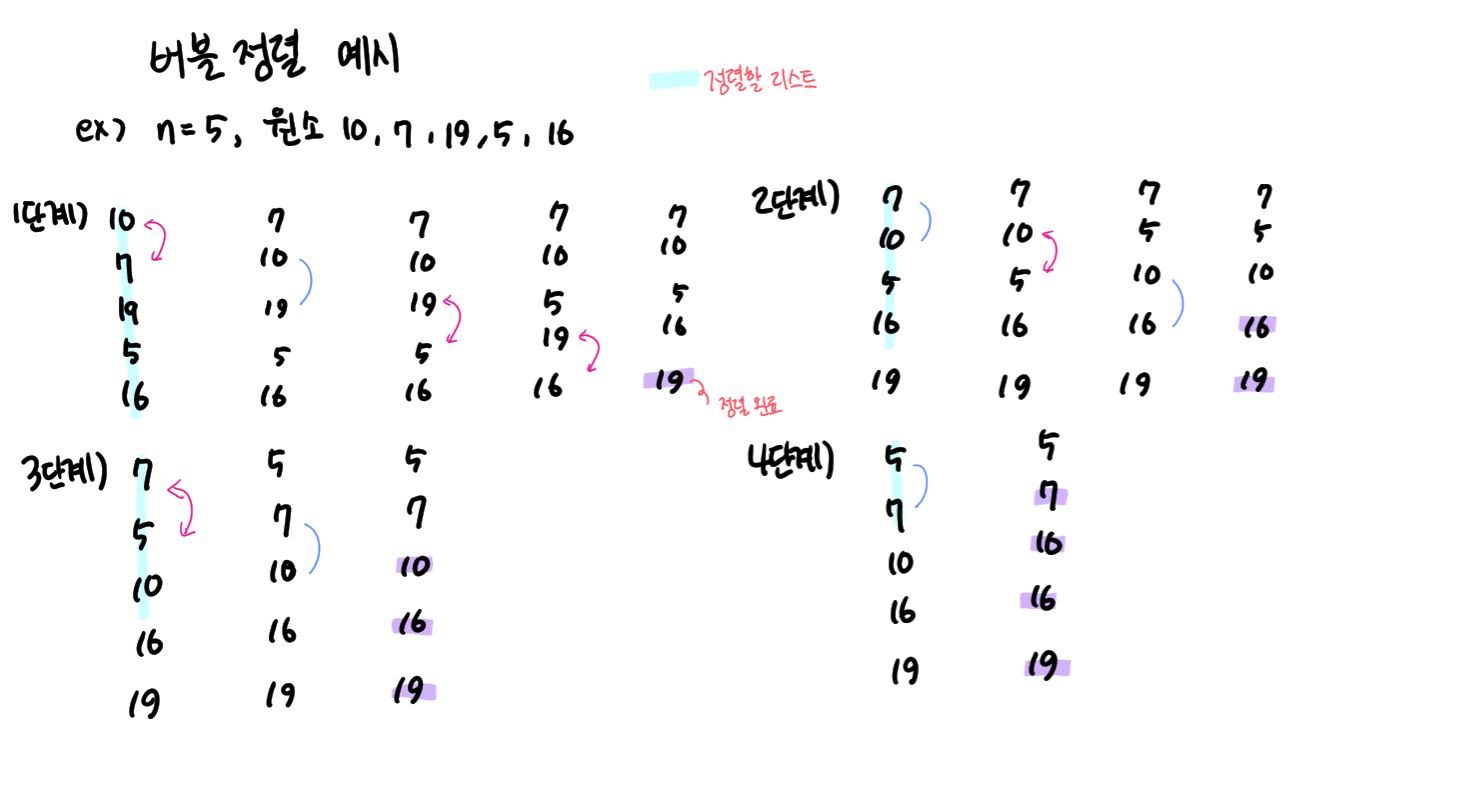 버블 정렬 예시
정렬할 리스트
ex) n=5, 원소 10, 7, 19, 5, 16
1단계)
10 7 7 7 7
7 10 10 10 10
19 19 19 5 5
5 5 5 19 16
16 16 16 16 19
정렬 완료
2단계)
7 7 7 7
10 10 5 5
5 5 10 10
16 16 16 16
19 19 19 19
3단계)
7 5 5
5 7 7
10 10 10
16 16 16
19 19 19
4단계)
5 5
7 7
10 16
16 16
19 19